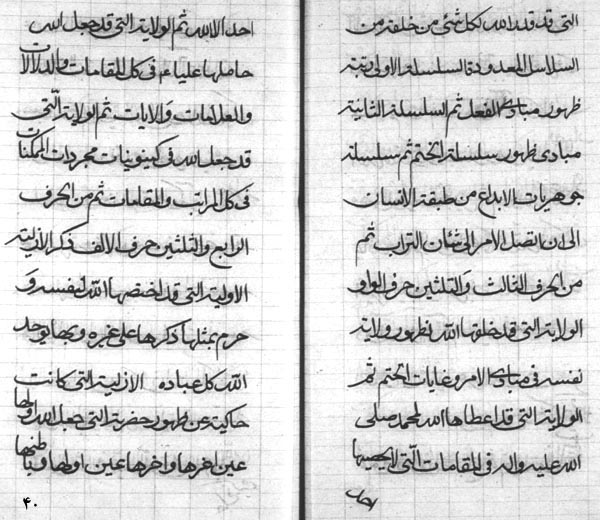 التی قد قدر الله لکل شئ من خلقه من
السلاسل المعدودة السلسلة الاولی رتبة
ظهور مبادی الفعل ثم السلسلة الثانیة
مبادی ظهور سلسلة الختم ثم سلسلة
جوهریات الابداع من طبقة الانسان
الی ان اتصل الامر الی شئان التراب ثم
من الحرف الثالث والثلثین حرف الواو
الولایة التی قد خلقها الله لظهور ولایة
نفسه فی مبادی الامر وغایات الختم ثم
الولایة التی قد اعطاها الله لمحمد صلی
الله علیه واله فی المقامات التی لا یحصیها
احد
احد الا الله ثم الولایة التی قد جعل الله
حاملها علیا ء فی کل المقامات والدلالات
والعلامات والایات ثم الولایة التی
قد جعل الله فی کینونیات مجردات الممکنات
فی کل المراتب والمقامات ثم من الحرف
الرابع والثلثین حرف الالف ذکر الازلیة
الاولیة التی قد اختصها الله لنفسه و
حرم بمثلها ذکرها علی غیره وبها یوحد
الله کل عباده الازلیة التی کانت
حاکیة عن ظهور حضرته التی جعل الله اولها
عین اخرها واخرها عین اولها وباطنها
۴۰